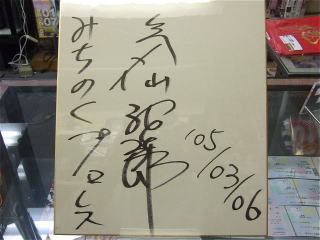 気仙沼二郎
みちのくプロレス
'05/03/06